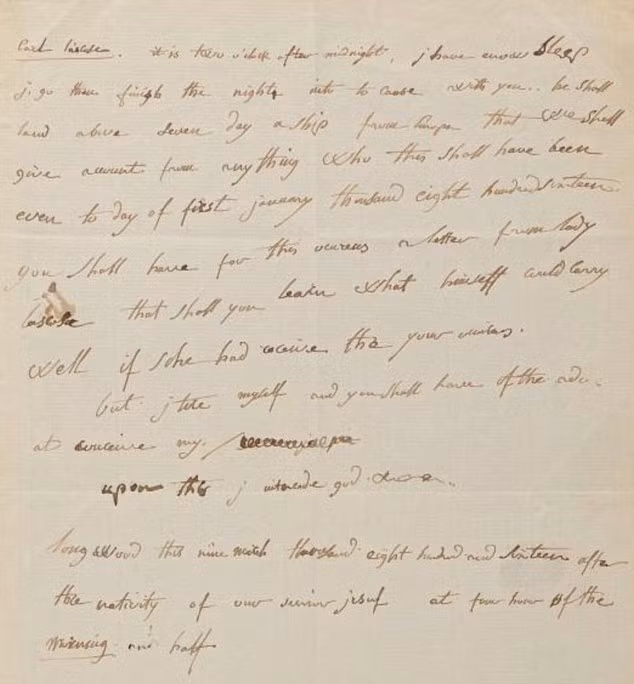 Cout lascase. it is two o'clock after midnight, j have enow sleep
j go then finish the night into to cause with you.. he shall
land above seven day a ship from europe that we shall
give account from anything who this shall have been
even to day of first january thousand eight hundred sixteen.
you shall have for this ocurens a letter from lady
lascase that shall you learn what himself could carry
well if she had receive the your ocurens.
but j tire myself and you shall have of the ado
at conceive my
upon this j intercede god
longwood this nine march thousand eight hundred and sixteen after
the nativity of our jesus at four hour of the
morning and half